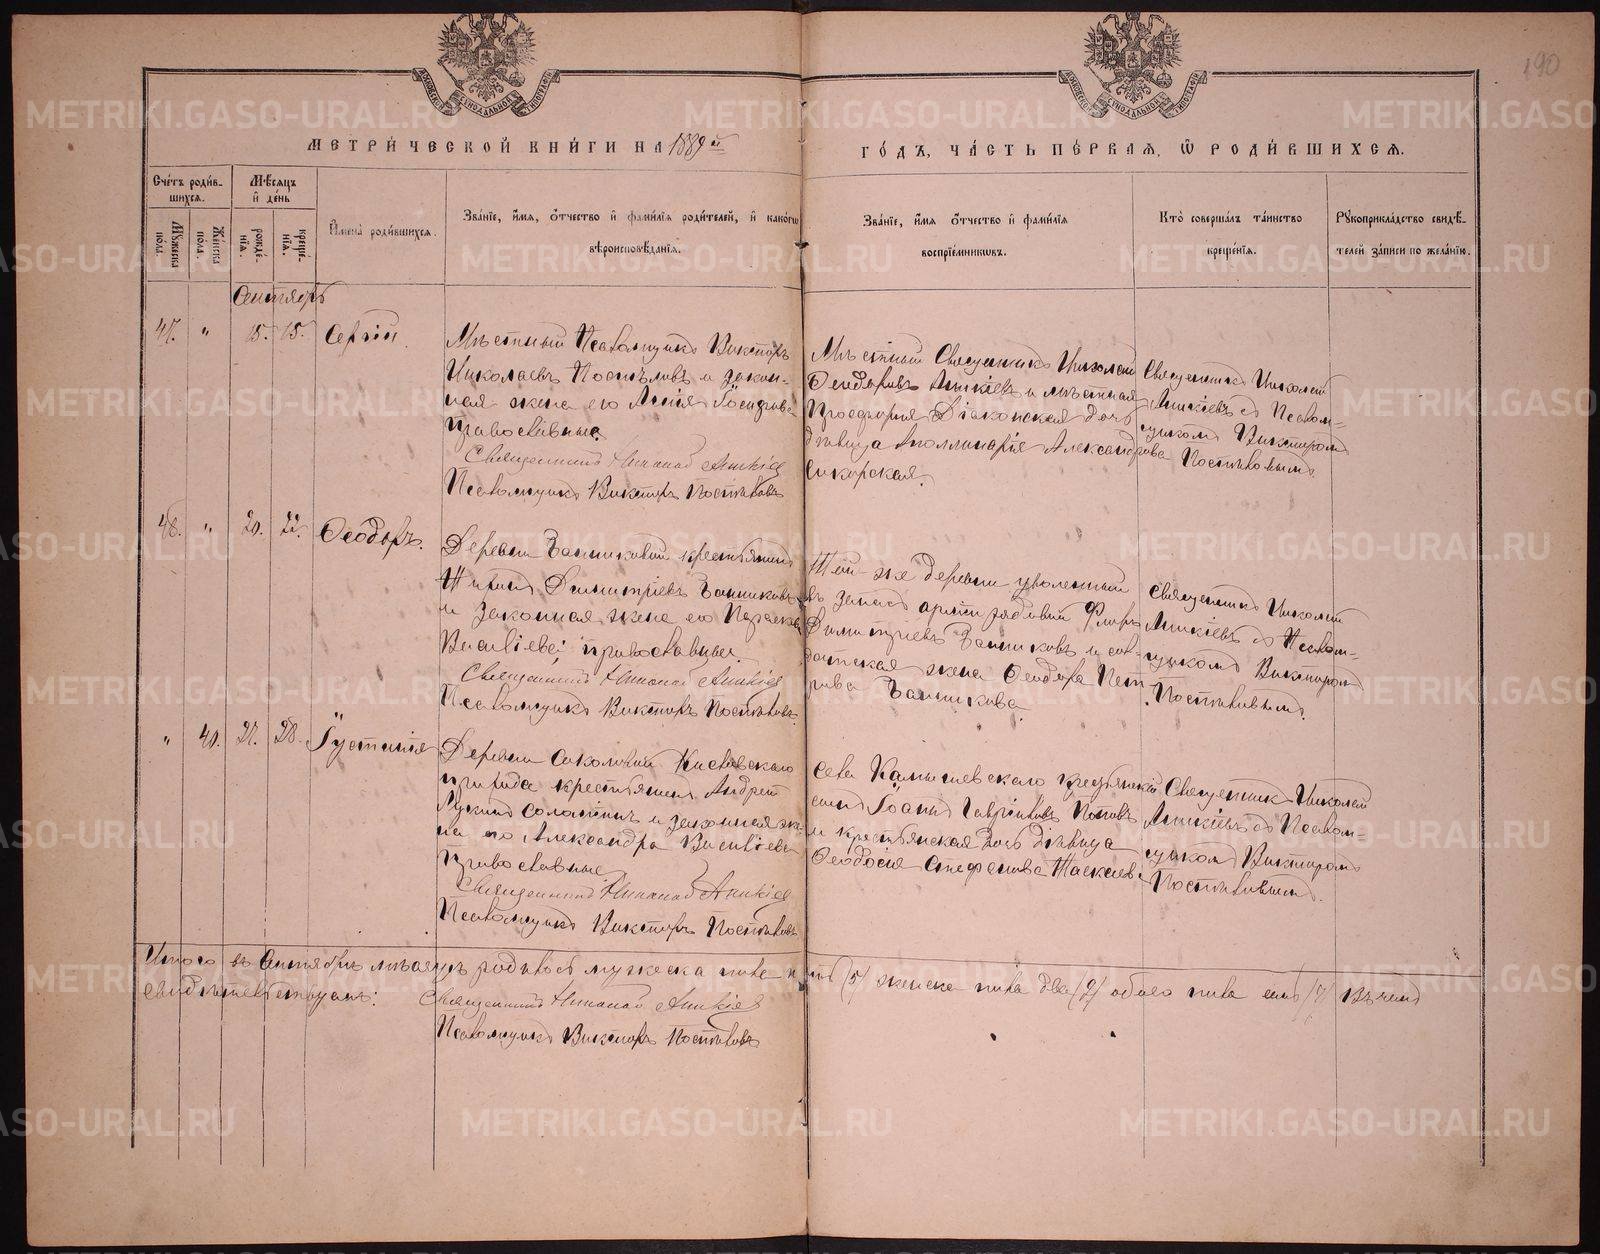 190
МОСКОВСКОЙ СѴНОДАЛЬНОЙ ТИПОГРАФІИ
МОСКОВСКОЙ СѴНОДАЛЬНОЙ ТИПОГРАФІИ
МЕТРИ́ЧЕСКОЙ КНИ́ГИ НА 1889й
ГО́ДЪ, ЧА́СТЬ ПЕ́РВАЯ, Ѽ РОДИ́ВШИХСЯ.
Сче́тъ роди́в-
шихся.
Мꙋ́жеска по́ла.
Же́нска по́ла.
Мѣ́сяцъ и҆ де́нь
рожде́-
нїѧ.
креще́-
нїѧ.
И҆мена̀ роди́вшихся.
Зва́нїе, и҆́мѧ, ѻ҆́тчество и҆ фами́лїѧ роди́телей, и҆ како́гѡ
вѣроисповѣ́данїѧ.
Зва́нїе, и҆́мѧ ѻ҆́тчество и҆ фами́лїѧ
воспрїе́мникѡвъ.
Кто̀ соверша́лъ та́инство
креще́нїѧ.
Рꙋкоприкла́дство свидѣ́-
телей за́писи по жела́нїю.
Сентябрь
47. " 15. 15. Сергій
Мѣстный Псаломщикъ Викторъ
Николаевъ Поспѣловъ и закон-
ная жена его Анна
православные.
Священникъ Николай Аникіев
Псаломщикъ Викторъ Поспѣловъ
Мѣстный Священникъ Николай
Ѳеодоровъ Аникіевъ и мѣстная
Діаконская дочь
дѣвица Аполлинарія Александрова
Сикорская.
Священникъ Николай
Аникіевъ съ Псалом-
щикомъ Викторомъ
Поспѣловымъ
48. " 20. 22. Ѳеодоръ.
Деревни Банниковой крестьянинъ
Димитріевъ Банниковъ
и законная жена его Параскева
Васильева; православные.
Священникъ Николай Аникіев
Псаломщикъ Викторъ Поспѣловъ.
Той-же деревни уволенный
въ запасъ арміи рядовой Флоръ
Димитріевъ Банниковъ и сол-
датская жена Ѳеодора Пет-
рова Банникова.
Священникъ Николай
Аникіевъ съ Псалом-
щикомъ Викторомъ
Поспѣловымъ.
" 40. 27. 28. Іустинія
Деревни Соколовой
прихода крестьянинъ Андрей
Лукинъ и законная же-
на его Александра Васильева
Православные
Священникъ Николай Аникіев
Псаломщикъ Викторъ Поспѣловъ
Села Камышевского крестьянскій
сынъ Іоаннъ Гавріиловъ Поповъ
и крестьянская дочь дѣвица
Ѳеодосія Стефанова
Священникъ Николай
Аникіевъ съ Псалом-
щикомъ Викторомъ
Поспѣловымъ.
Итого въ Сентябрѣ мѣсяцѣ родилось мужеска пола пять (5) женска пола два (2) обоего пола семь (7) Въ чемъ
свидѣтельствуемъ: Священникъ Николай Аникіев
Псаломщикъ Викторъ Поспѣловъ
METRIKI.GASO-URAL.RU